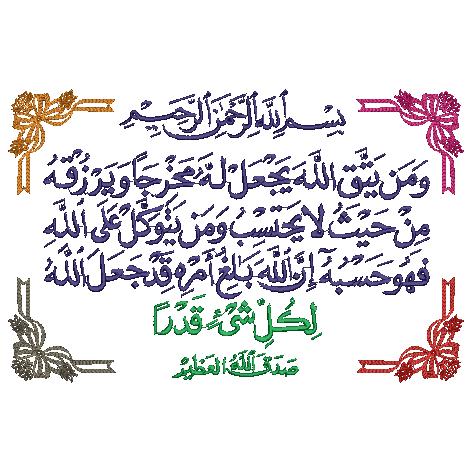 بِسْمِ ٱللَّهِ ٱلرَّحْمَٰنِ ٱلرَّحِيمِ
وَمَن يَتَّقِ اللَّهَ يَجْعَل لَّهُ مَخْرَجًا وَيَرْزُقْهُ
مِنْ حَيْثُ لَا يَحْتَسِبُ وَمَن يَتَوَكَّلْ عَلَى اللَّهِ
فَهُوَ حَسْبُهُ إِنَّ اللَّهَ بَالِغُ أَمْرِهِ قَدْ جَعَلَ اللَّهُ
لِكُلِّ شَيْءٍ قَدْرًا
صَدَقَ اللَّهُ العَظِيمُ